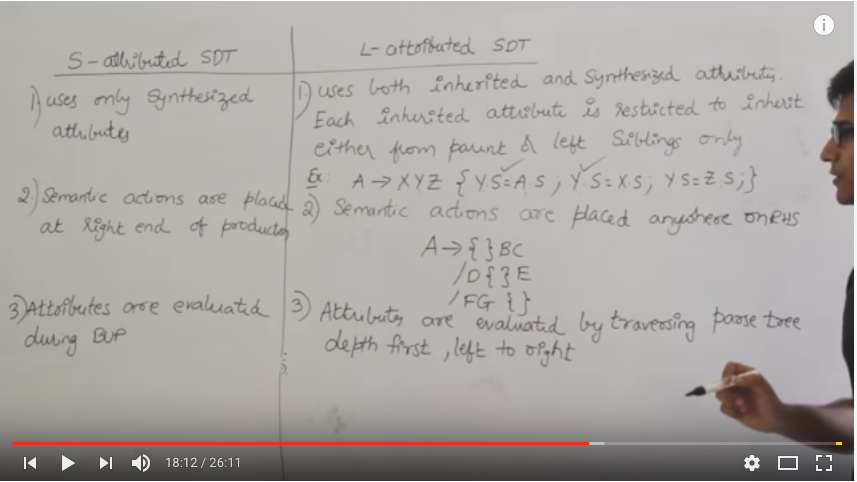 S-attributed SDT
1) uses only Synthesized
attributes
2.) Semantic actions are placed
at Right end of production
3) Attributes are evaluated
during BUP
L-attributed SDT
1) uses both inherited and Synthesized attributes.
Each inherited attribute is restricted to inherit
either from parent & left Siblings only
Ex: A → XYZ { Y.S=A.S ; Y.S=X.S ; Y.S=Z.S ; }
2) Semantic actions are placed anywhere on RHS
A → { } BC
/D{ }E
/FG { }
3) Attributes are evaluated by traversing parse tree
depth first , left to right
18:12 / 26:11